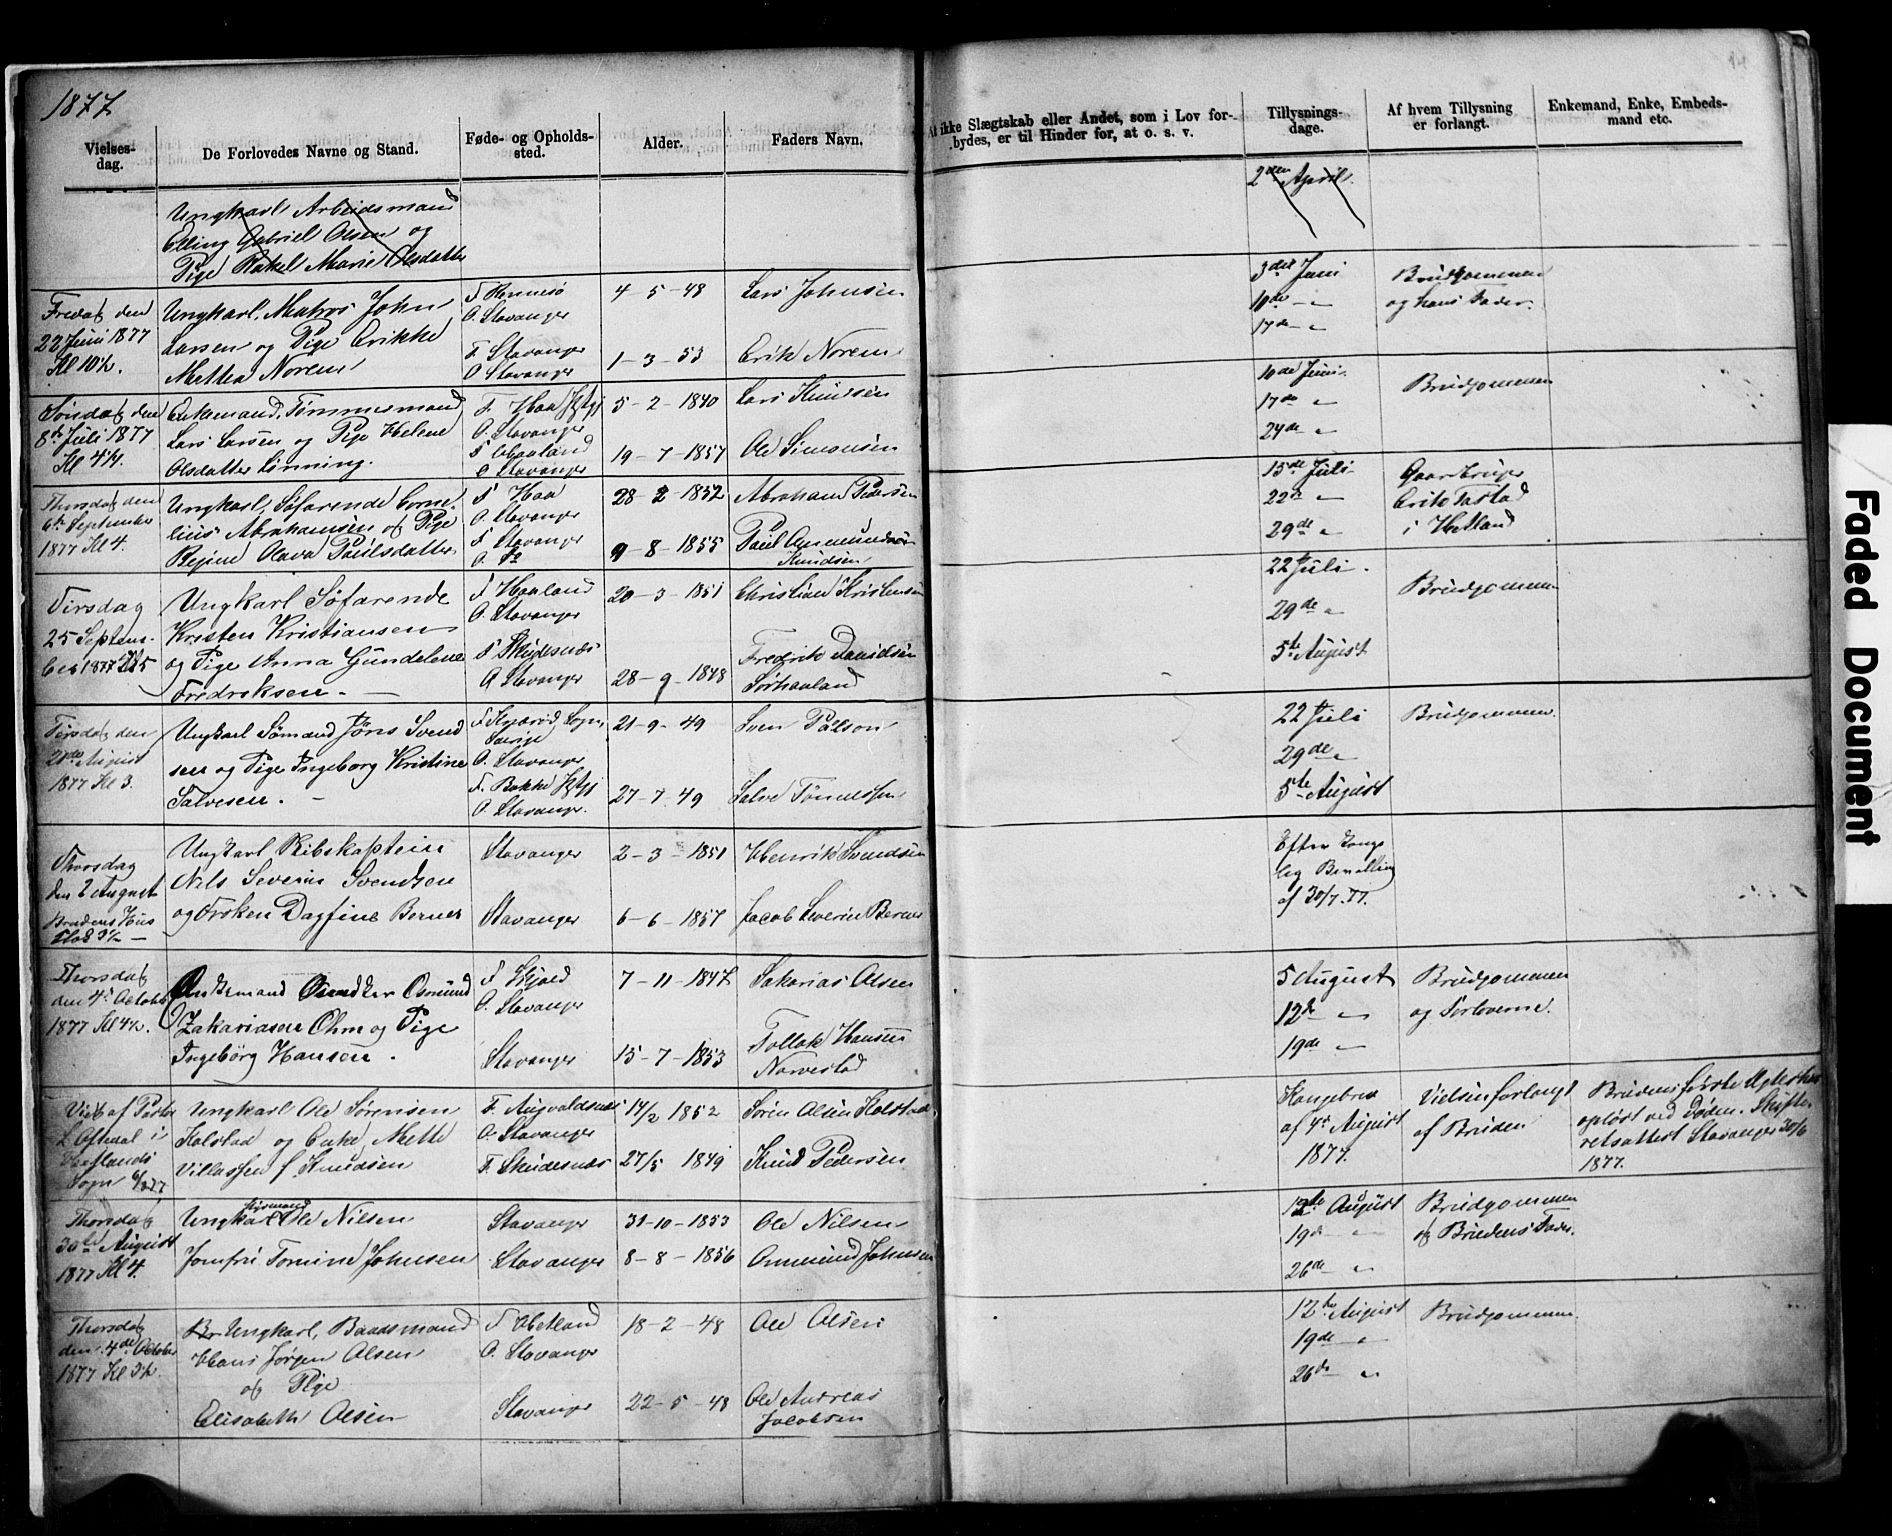 1877
Vielses-
dag.
De Forlovedes Navne og Stand.
Føde- og Opholds-
sted.
Alder.
Faders Navn.
At ikke Slægtskab eller Andet, som i Lov for-
bydes, er til Hinder for, at o. s. v.
Tillysnings-
dage.
Af hvem Tillysning
er forlangt.
Enkemand, Enke, Embeds-
mand etc.
Ungkarl Arbeidsmand
Elling Gabriel Olsen og
Pige Rakel Marie Olsdatter
2den April
Fredag den
22 Juni 1877
Kl 10½.
Ungkarl, Matros John
Larsen og Pige Erikke
Mettea Norem
F. Rennesø
O. Stavanger
F. Stavanger
O Stavanger
4-5-48
1-3-53
Lars Johnsen
Erik Norem
3die Juni
10de "
17de "
Brudgommen
og hans Fader.
Søndag den
8de Juli 1877
Kl 4½.
Enkemand, Tømmermand
Lars Larsen og Pige Helene
Olsdatter Lønning.
F. Haa
O. Stavanger
F Haaland
O Stavanger
5-2-1840
19-7-1857
Lars Knudsen
Ole Simonsen
10de Juni
17de "
24de "
Brudgommen
Thorsdag den
6te September
1877 Kl 4.
Ungkarl, Søfarende Corne-
lius Abrahamsen og Pige
Regine Olava Paulsdatter
F Haa
O. Stavanger
F Stavanger
O. Do
28-2-1852
9-8-1855
Abraham Pedersen
Paul Ommundsen
Knudsen
15de Juli
22de "
29de "
Gaardbruger
Erik
i Hetland
Tirsdag
25 Septem-
ber 1877
Ungkarl Søfarende
Kristen Kristiansen
og Pige Anna Gundelene
Fredreksen. -
F Haaland
O. Stavanger
F Skudesnæs
O Stavanger
20-3-1851
28-9-1848
Christian Kristensen
Fredrik Davidsen
Sørhaaland
22 Juli
29de "
5te August
Brudgommen
Tirsdag den
21de August
1877 Kl 3.
Ungkarl Sømand Jöns Svend
sen og Pige Ingeborg Kristine
Salvesen. -
Sogn,
Sverige
O. Stavanger
F. Bakke
O. Stavanger.
21-9-49
27-7-49
Sven Palson
Salve Tønnessen
22 Juli
29de "
5te August
Brudgommen.
Thorsdag
den 2 August
Brudens Hus
Ungkarl Skibskaptein
Nils Severin Svendsen
og Frøken Dagfine Berner
Stavanger
Stavanger
2-3-1851
6-6-1857
Henrik Svendsen
Jacob Severin Berner
Efter Konge
lig Bevilling
af 30/7. 77.
Thorsdag
den 4de October
1877 Kl 4½.
Enkemand Osmund
Zakariasen Ohm og Pige
Ingebörg Hansen.
F. Skjold
O. Stavanger
Stavanger
7-11-1847
15-7-1853
Sakarias Olsen
Tollak Hansen
Norvestad
5 August
12te "
19de "
Brudgommen
og Forloverne.
Viet af Pastor
i
Sogn
Ungkarl Ole Sørensen
Kolstad og Enke Mette
Villassen f Knudsen
F. Augvaldsnæs
O. Stavanger
F. Skudesnæs
14/2 1852
27/5 1849
Søren Olsen Kolstad
Knud Pedersen
Kongebrev
af 4de August
1877.
Vielsen forlangt
af Bruden
Brudens første Ægteskab
opløst ved Døden. Skifte-
retsattest Stavanger 30/6
1877.
Thorsdag
30te August
1877 Kl 4.
Styrmand
Ungkarl Ole Nilsen
Jomfru Tomine Johnsen
Stavanger
Stavanger
31-10-1853
8-8-1856
Ole Nilsen
Ommund Johnsen
12te August
19de "
26de "
Brudgommen
og Brudens Fader.
Thorsdag
den 4de October
1877 Kl 3½.
Ungkarl, Baadsmand
Hans Jørgen Olsen
og Pige
Elisabeth Olsen
F Hetland
O. Stavanger
Stavanger
18-2-48
22-5-48
Ole Olsen
Ole Andreas
Jacobsen
12te August
19de "
26de "
Brudgommen.
Faded Document